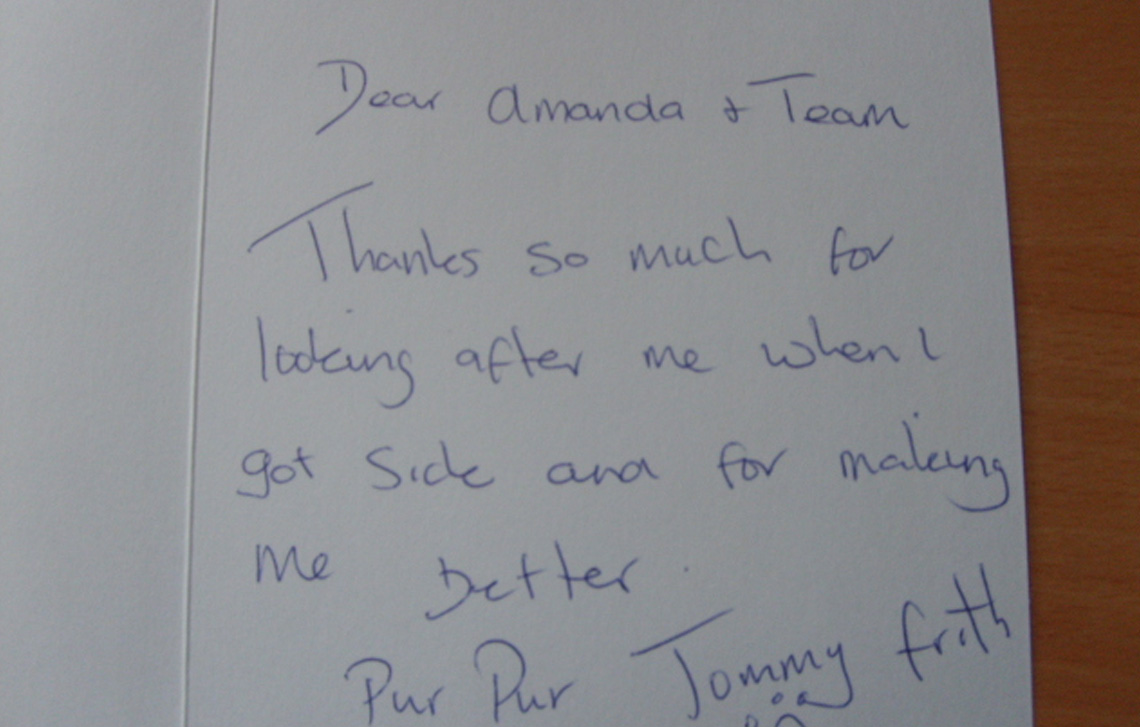 Dear Amanda + Team
Thanks so much for
looking after me when I
got sick and for making
me better.
Pur Pur Tommy Frith